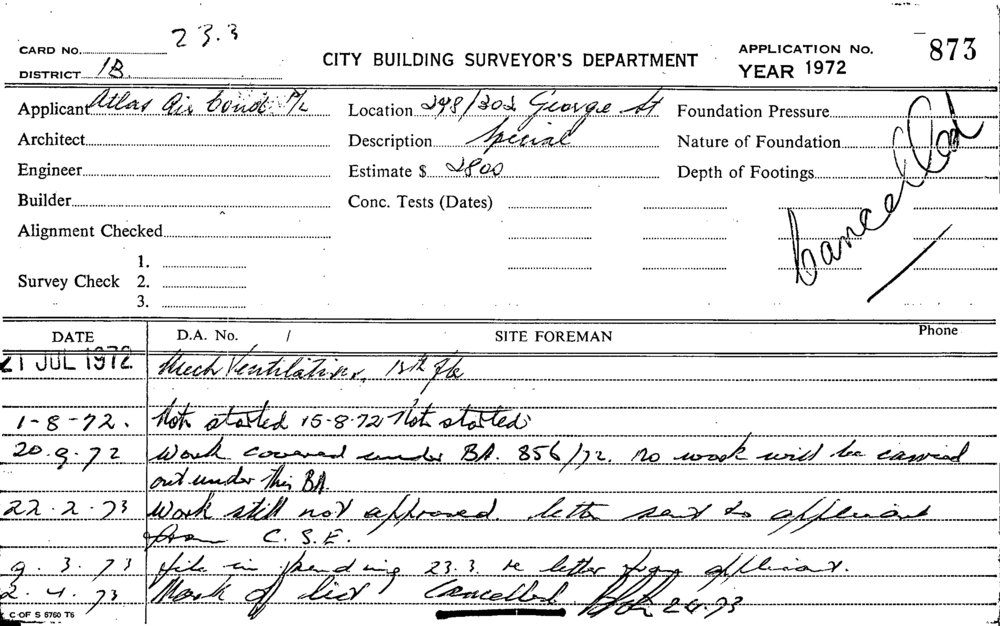 CARD NO. 23.3
CITY BUILDING SURVEYOR'S DEPARTMENT
APPLICATION No. 873
DISTRICT 1B.
YEAR 1972
Applicant Atlas Air Cond. P/L Location 298/302 George St Foundation Pressure
Architect Description Special Nature of Foundation
Engineer Estimate $ 2800 Depth of Footings
Cancelled
Builder Conc. Tests (Dates)
Alignment Checked
1.
Survey Check 2.
3.
DATE D.A. No. / SITE FOREMAN Phone
21 JUL 1972 Mech Ventilation,
1-8-72. Not started 15-8-72 Not started
20.9.72 Work covered under BA. 856/72. No work will be carried
out under this BA.
22.2.73 Work still not approved. letter sent to applicant
from C.S.E.
9.3.73 file in pending 23.3. re letter from applicant.
2.4.73 Mark off list Cancelled 2.4.73
C OF S 6760 T6